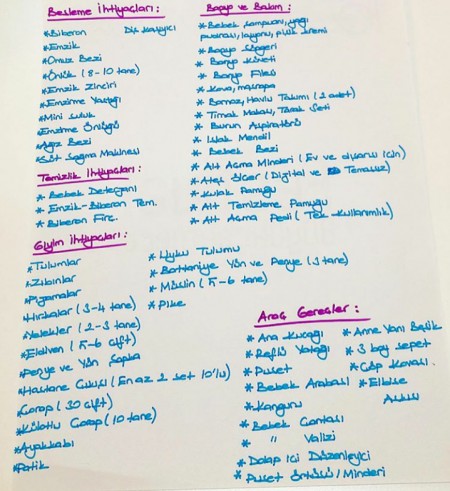 Besleme İhtiyaçları:
* Biberon
Diş Kaşıyıcı
* Emzik
* Omuz Bezi
* Önlük (8-10 tane)
* Emzik Zinciri
* Emzirme Yastığı
* Mini suluk
* Emzirme Önlüğü
* Ağız Bezi
* Süt Sağma Makinesi
Temizlik İhtiyaçları:
* Bebek Deterjanı
* Emzik-Biberon Tem.
* Biberon Fırç.
Giyim İhtiyaçları:
* Tulumlar
* Zıbınlar
* Pijamalar
* Hırkalar (3-4 tane)
* Yelekler (2-3 tane)
* Eldiven (5-6 çift)
* Penye ve Yün Şapka
* Hastane Çıkışı (En az 2 set 10'lu)
Çorap (30 çift)
* Külotlu Çorap (10 tane)
* Ayakkabı
* Patik
* Uyku Tulumu
* Battaniye Yün ve Penye (3 tane)
* Müslin (5-6 tane)
* Pike
Banyo ve Bakım:
* Bebek şampuanı, yağı
pudrası, losyonu, pişik kremi
* Banyo Süngeri
* Banyo Küveti
* Banyo Filesi
* Kova, maşrapa
* Bornoz, Havlu Takımı (2 adet)
* Tırnak Makası, Tarak Seti
* Burun Aspiratörü
* Islak Mendil
* Bebek Bezi
* Alt Açma Minderi (Ev ve dışarısı için)
* Ateş Ölçer (Digital ve Temassız)
* Kulak Pamuğu
* Alt Temizleme Pamuğu
* Alt Açma Pedi (Tek-Kullanımlık)
Araç Gereçler:
* Ana Kucağı
* Reflü Yatağı
* Puset
* Bebek Arabası
* Kanguru
* Bebek Çantası
* " Valizi
* Dolap içi Düzenleyici
* Puset Örtüsü/Minderi
* Anne Yanı Beşik
* 3 boy sepet
* Çöp Kovası
* Elbise
Askısı